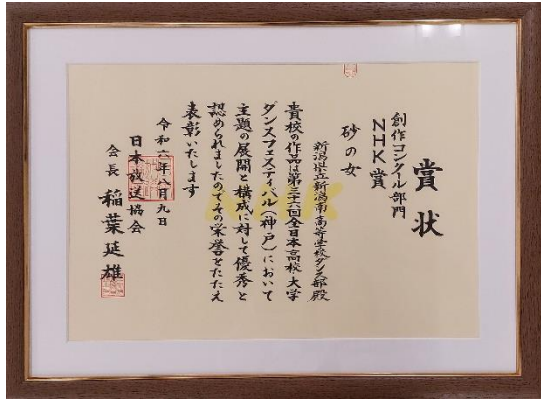 賞状
創作コンクール部門
NHK賞
砂の女
新潟県立新潟南高等学校ダンス部殿
貴校の作品は第三十六回全日本高校・大学
ダンスフェスティバル(神戸)において
主題の展開と構成に対して優秀と
認められましたのでその栄誉をたたえ
表彰いたします
令和六年八月九日
日本放送協会
会長 稲葉延雄
NHK